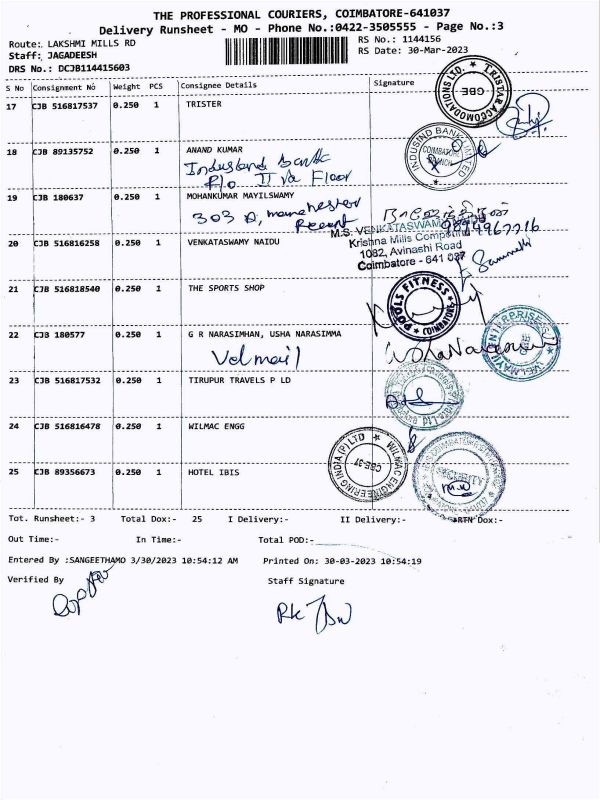 THE PROFESSIONAL COURIERS, COIMBATORE-641037
Delivery Runsheet - MO - Phone No.:0422-3505555 - Page No.:3
Route: LAKSHMI MILLS RD
RS No.: 1144156
Staff: JAGADEESH
RS Date: 30-Mar-2023
DRS No.: DCJB114415603
S No Consignment No Weight PCS Consignee Details Signature
17 CJB 516817537 0.250 1 TRISTER
TRISTAR ACCOMODATIONS LTD. CBE
18 CJB 89135752 0.250 1 ANAND KUMAR
Indusland bank
F/o II nd Floor
INDUSIND BANK LIMITED COIMBATORE
19 CJB 180637 0.250 1 MOHANKUMAR MAYILSWAMY
303 A, manchester
Regent
M.S. VENKATASWAMY
Krishna Mills Compound
1082, Avinashi Road
Coimbatore - 641 037
20 CJB 516816258 0.250 1 VENKATASWAMY NAIDU
21 CJB 516818540 0.250 1 THE SPORTS SHOP
POOLS FITNESS
22 CJB 180577 0.250 1 G R NARASIMHAN, USHA NARASIMMA
Velmail
Usha Narasim
VELMAYIL ENTERPRISES
23 CJB 516817532 0.250 1 TIRUPUR TRAVELS P LD
24 CJB 516816478 0.250 1 WILMAC ENGG
WILMAC ENGINEERING INDIA (P) LTD CBE-37
25 CJB 89356673 0.250 1 HOTEL IBIS
SECURITY
Tot. Runsheet:- 3 Total Dox:- 25 I Delivery:- II Delivery:- RTN Dox:-
Out Time:- In Time:- Total POD:-
Entered By :SANGEETHAMO 3/30/2023 10:54:12 AM Printed On: 30-03-2023 10:54:19
Verified By Staff Signature